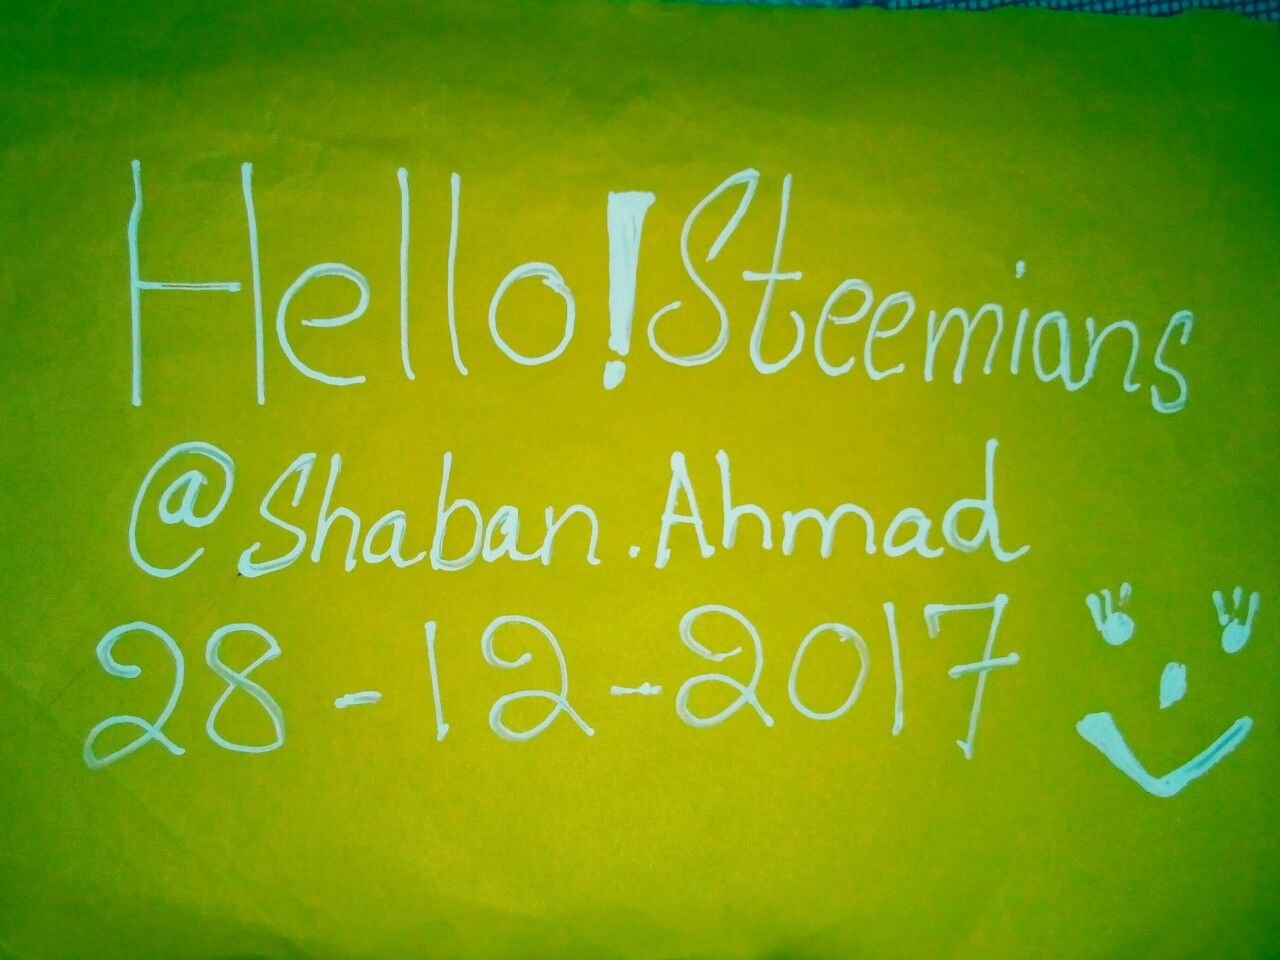 Hello! Steemians
@Shaban.Ahmad
28-12-2017